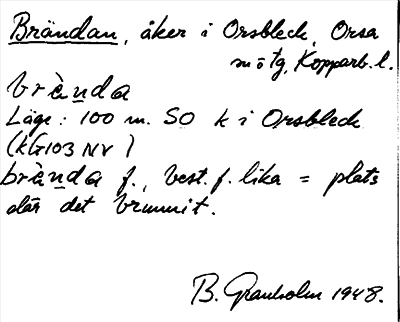 Brändan, åker i Orsbleck, Orsa
sn o tg, Kopparb. l.
brä̀nda
Läge: 100 m. SO k i Orsbleck
(kG103 NV)
brä̀nda f., best. f. lika = plats
där det brunnit.
B. Granholm 1948.